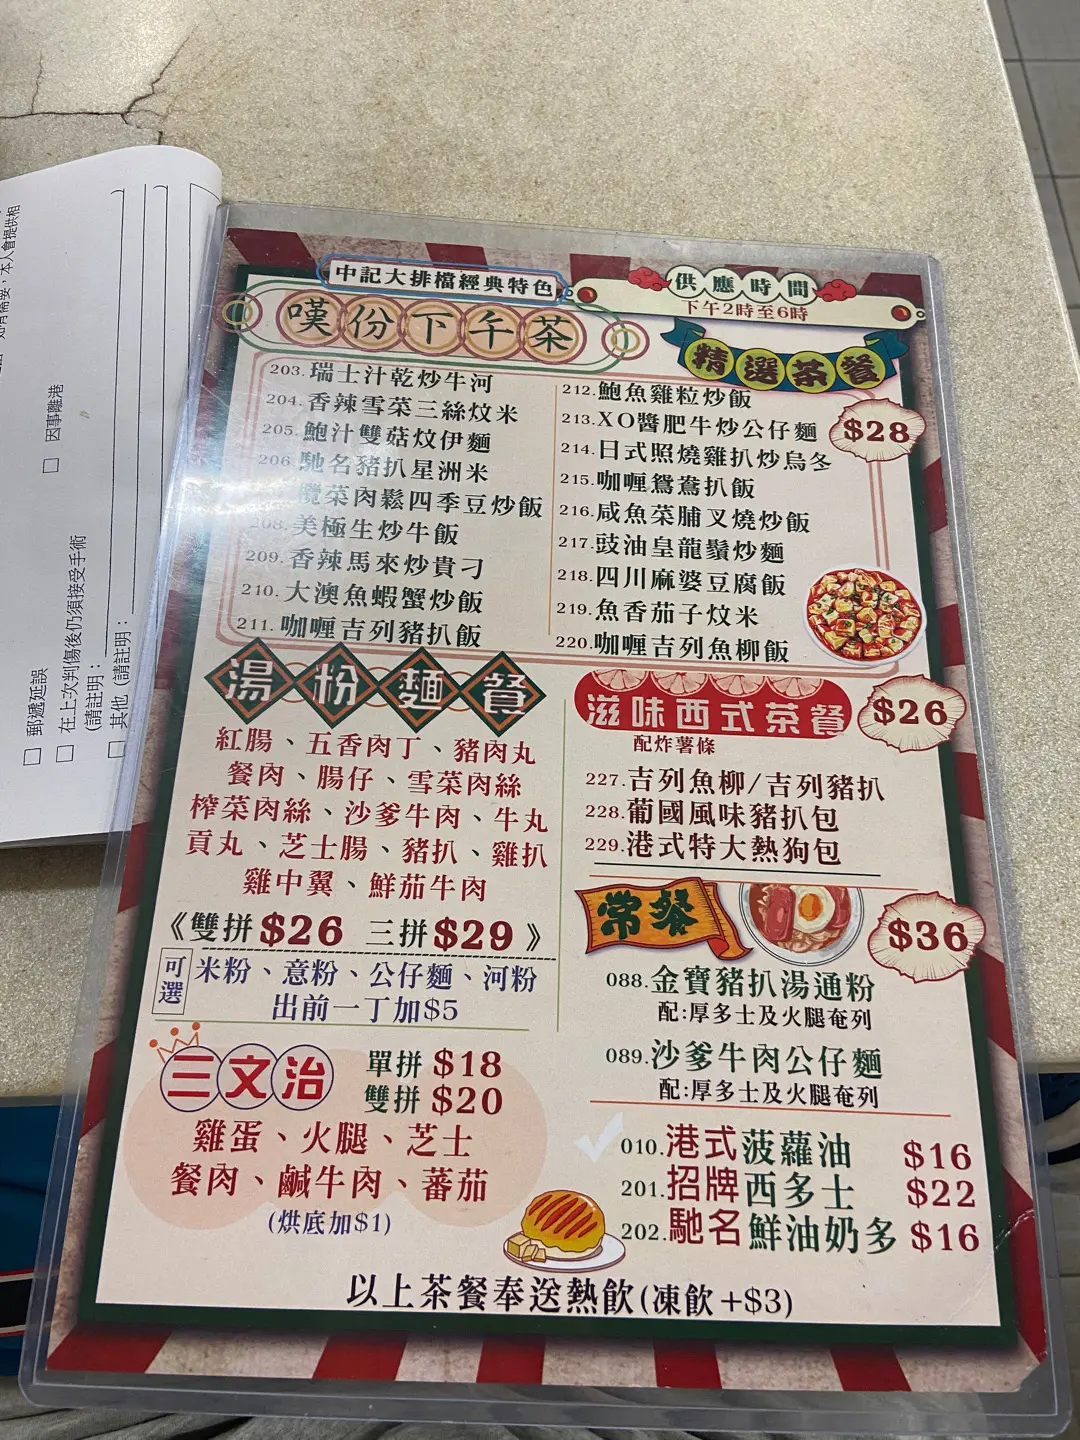 中記大排檔經典特色
嘆份下午茶
供應時間
下午2時至6時
精選茶餐
$28
203.瑞士汁乾炒牛河
204.香辣雪菜三絲炆米
205.鮑汁雙菇炆伊麵
206.馳名豬扒星洲米
欖菜肉鬆四季豆炒飯
208.美極生炒牛飯
209.香辣馬來炒貴刁
210.大澳魚蝦蟹炒飯
211.咖喱吉列豬扒飯
212.鮑魚雞粒炒飯
213.XO醬肥牛炒公仔麵
214.日式照燒雞扒炒烏冬
215.咖喱鴛鴦扒飯
216.咸魚菜脯叉燒炒飯
217.豉油皇龍鬚炒麵
218.四川麻婆豆腐飯
219.魚香茄子炆米
220.咖喱吉列魚柳飯
湯粉麵餐
紅腸、五香肉丁、豬肉丸
餐肉、腸仔、雪菜肉絲
榨菜肉絲、沙爹牛肉、牛丸
貢丸、芝士腸、豬扒、雞扒
雞中翼、鮮茄牛肉
《雙拼$26 三拼$29》
可選
米粉、意粉、公仔麵、河粉
出前一丁加$5
三文治
單拼 $18
雙拼 $20
雞蛋、火腿、芝士
餐肉、鹹牛肉、蕃茄
(烘底加$1)
滋味西式茶餐
$26
配炸薯條
227.吉列魚柳/吉列豬扒
228.葡國風味豬扒包
229.港式特大熱狗包
常餐
$36
088.金寶豬扒湯通粉
配:厚多士及火腿奄列
089.沙爹牛肉公仔麵
配:厚多士及火腿奄列
010.港式菠蘿油 $16
201.招牌西多士 $22
202.馳名鮮油奶多 $16
以上茶餐奉送熱飲(凍飲+$3)
因事離港
郵遞延誤
在上次判傷後仍須接受手術
(請註明：
)
其他 (請註明：
)